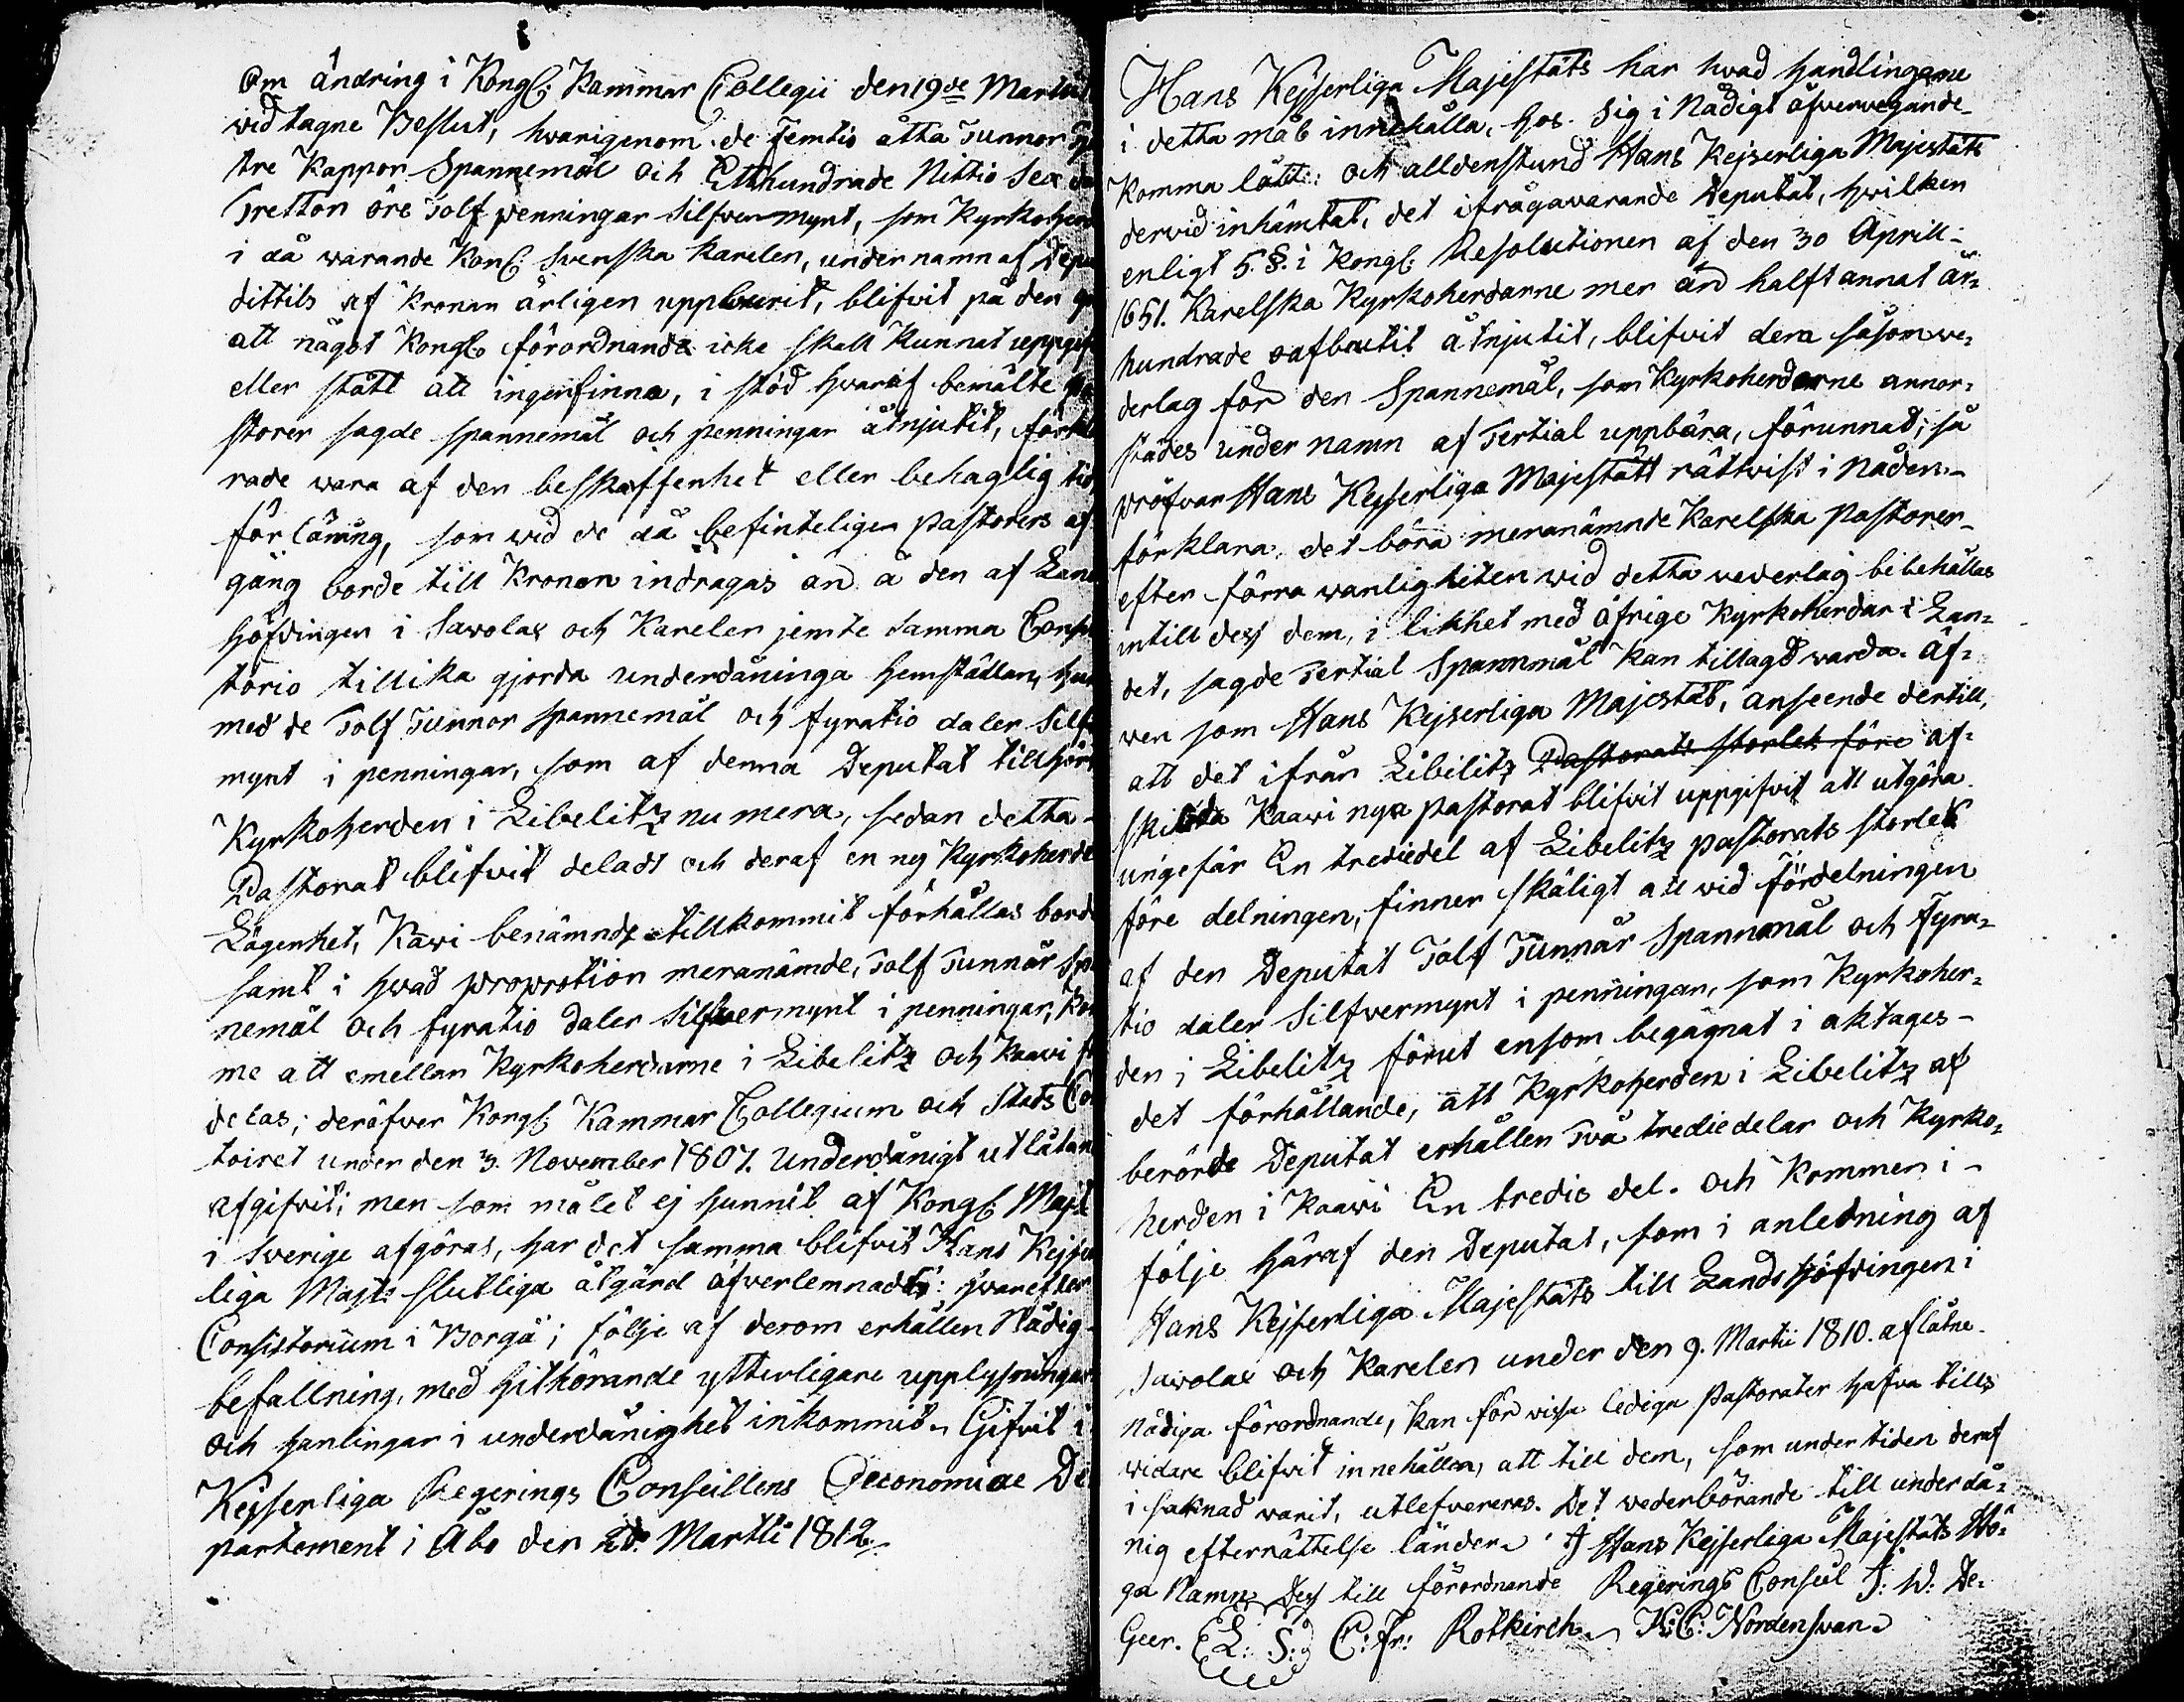 Om ändring i Kongl. Kammar Collegii den 19de Martii
widtagne Beslut, hwarigenom de Femtio åtta Tunnor
tre Kappor Spannemål och Etthundrade Nittio Sex
Tretton öre Tolf penningar Silfwermynt, som Kyrkoher
i då warande Kongl. Svenska Karelen, under namn af Depu
dittils af Kronan årligen uppburit, blifvit på den
att något Kongl. förordnande icke skall Kunnat uppgif
eller stått att ingenfinna, i stöd hwaraf bemälte
storer sagde spannemål och penningar åtnjutit, förkla
rade wara af den beskaffenhet eller behaglig tid
förläning, som wid de då befinteligen pastorers af
gång borde till Kronan indragas an å den af Land
höfdingen i Sawolax och Karelen jemte samma Consis
torio tillika gjorda underdåninga hemställan, hu
med de Tolf Tunnor Spannemål och fyratio daler Silf
mynt i penningar, som af denna Deputat tillhört
Kyrkoherden i Libelitz nu mera, sedan detta
Pastorat blifvit deladt och deraf en ny Kyrkoherde
Lägenhet, Kawi benämnde tillkommit förhållas borde
samt i hwad proprotion meranämde, Tolf Tunnår Sp
nemål och fyratio daler Silfwermynt i penningar, Kom
me att emellan Kyrkoherdarne i Libelitz och Kaawi
delas; deröfwer Kongl. Kammar Collegium och Stats Co
toiret under den 3. November 1807. Underdånigt utlåtan
afgifvit; men som målet ej hunnit af Kongl. Majt
i Sverige afgöras, har det samma blifvit Hans Kejser
liga Majts slutliga åtgärd öfverlemnadt: hwarefter
Consistorium i Borgå i följe af derom erhållen Nådig
befallning, med hithörande ytterligare upplysningar
och hanlingar i underdånighet inkommit. Gifvit i
Kejserliga Regerings Conseillens Oeconomiae De
partement i Åbo den Martii 1812.
Hans Kejserliga Majestäts har hwad handlingarne
i detta mål innehålla, hos sig i Nådigt öfvervegande
Komma låtit: och alldenstund Hans Kejserliga Majestäts
derwid inhämtat, det ifrågawarande Deputat, hwilken
enligt 5. §. i Kongl. Resolutionen af den 30 Aprill
1651. Karelska Kyrkoherdarne mer än halftannat år=
hundrade oafbrutit åtnjutit, blifvit dem såsom we=
derlag för den Spannemål, som Kyrkoherdarne annor=
städes under namn af Tertial uppbära, förunnad; så
pröfvar Hans Kejserliga Majestätt rättwist i Nåden
förklara, det böra meranämnde Karelska pastorer
efter förra wanligheten wid detta wederlag bibehållas
intill dess dem, i likhet med öfrige Kyrkoherdar i Lan=
det, sagde Tertial Spannmål kan tillagd warda. Äf=
wen som Hans Kejserliga Majestät, anseende dertill,
att det ifrån Libilitz Pastorats storlek före af=
skilda Kaawi nya pastorat blifvit uppgifvit att utgöra
ungefär En trediedel af Libelitz pastorats storlek
före delningen, finner skäligt att wid fördelningen
af den Deputat Tolf Tunnår Spannmål och Fyra=
tio daler Silfvermynt i penningar, som Kyrkoher=
den i Libelitz förut ensom begagnat i aktages
det förhållande, att Kyrkoherden i Libelitz af
berörde Deputat erhåller Två trediedelar och Kyrko=
herden i Kaawi En tredie del. och Kommer i
följe häraf den Deputat, som i anledning af
Hans Kejserliga Majestäts till Landshöfdingen i
Sawolax och Karelen under den 9. Martii 1810. aflåtne
Nådiga förordnande, kan för wissa lediga Pastorater hafva tills
widare blifvit innehållen, att till dem, som under tiden deraf
i saknad warit, utlefvereras. Det wederbörande till underdå=
nig efterrättelse länder. I Hans Kejserliga Majestäts Hö=
ga Namn Dess till förordnande Regerings Conseil J: W: De
Geer. L: S: C: Fr: Rotkirch. K: C: Nordenswan